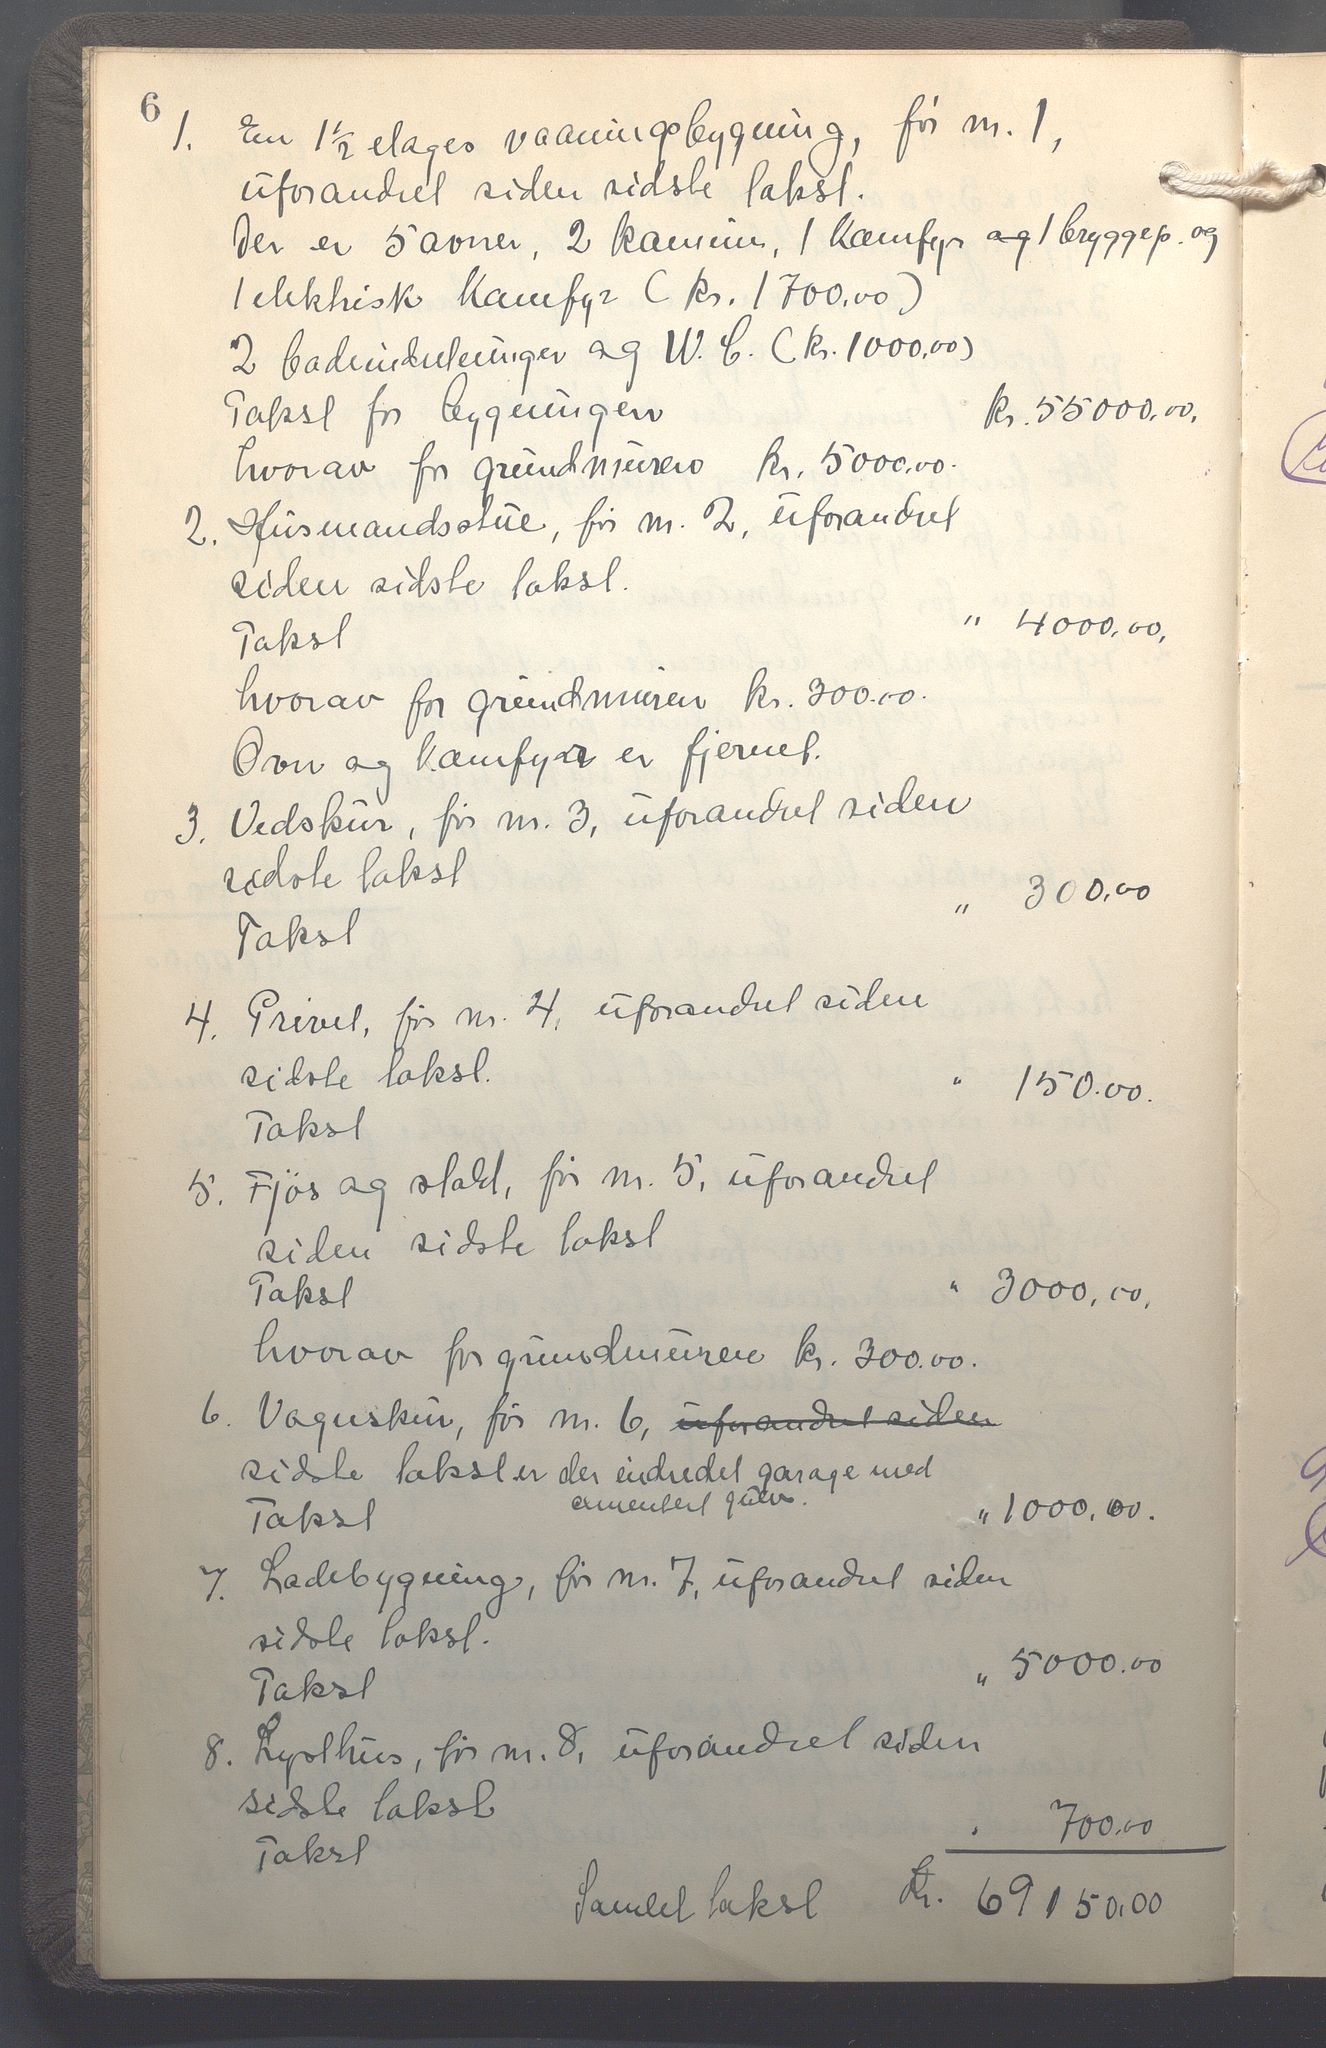 6
1. En 1 1/2 etages vaaningsbygning, før nr. 1,
uforandret siden sidste takst.
Der er 5 ovner, 2 kaminer, 1 Kamfyr og 1 bryggep. og
1 elektrisk Kamfyr (kr. 1700,00)
2 badeindretninger og W. C. (kr. 1000,00)
Takst for bygningen kr. 55000,00,
hvorav for grundmuren kr. 5000,00.
2. Husmandsstue, før nr. 2, uforandret
siden sidste takst.
Takst " 4000,00,
hvorav for grundmuren kr. 300.00.
Ovn og Kamfyr er fjernet.
3. Vedskur, før nr. 3, uforandret siden
sidste takst
Takst " 300,00
4. Privet, før nr. 4, uforandret siden
sidste takst.
Takst " 150.00.
5. Fjøs og stald, før nr. 5, uforandret
siden sidste takst
Takst " 3000,00,
hvorav for grundmuren kr. 300.00.
6. Vognskur, før nr. 6, uforandret siden
sidste takst er der indredet garage med
cementert gulv.
Takst " 1000,00.
7. Ladebygning, før nr. 7, uforandret siden
sidste takst.
Takst " 5000.00
8. Lysthus, før nr. 8, uforandret siden
sidste takst
Takst " 700,00
Samlet takst Kr. 69150,00